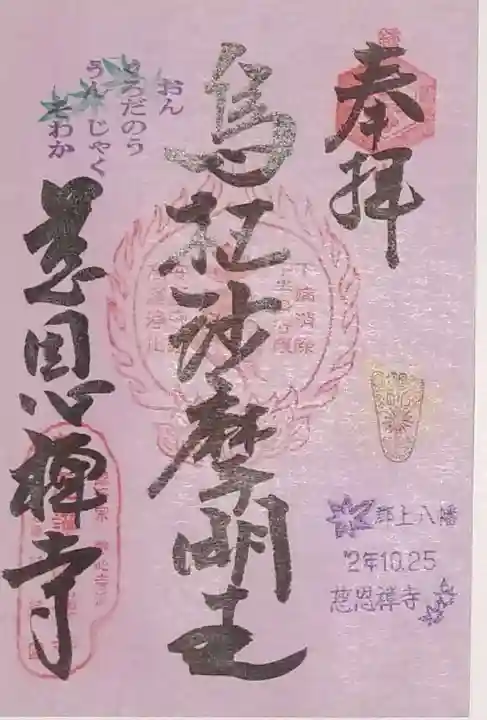 奉拝
烏枢沙摩明王
おん
くろだのう
うんじゃく
そわか
慈恩禅寺
郡上八幡
'2年10.25
慈恩禅寺